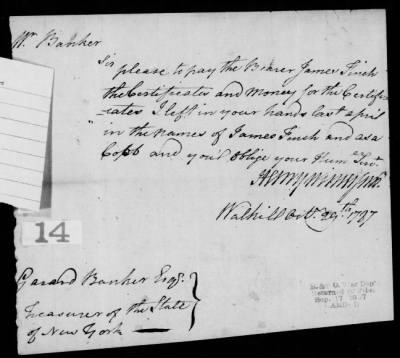 Mr. Banker
Sir
please to pay the Bearer James Finch
the Certificates and Money for the Certifi-
cates I left in your hands last april
in the names of James Finch and asa
Cobb and you'd oblige your Hum. Servt.
Walkill Octr. 29th 1787
14
Gerard Banker Esqr.
Treasurer of the State
of New York
R. & P. O. War Dep't
Returned to File,
Sep. 17